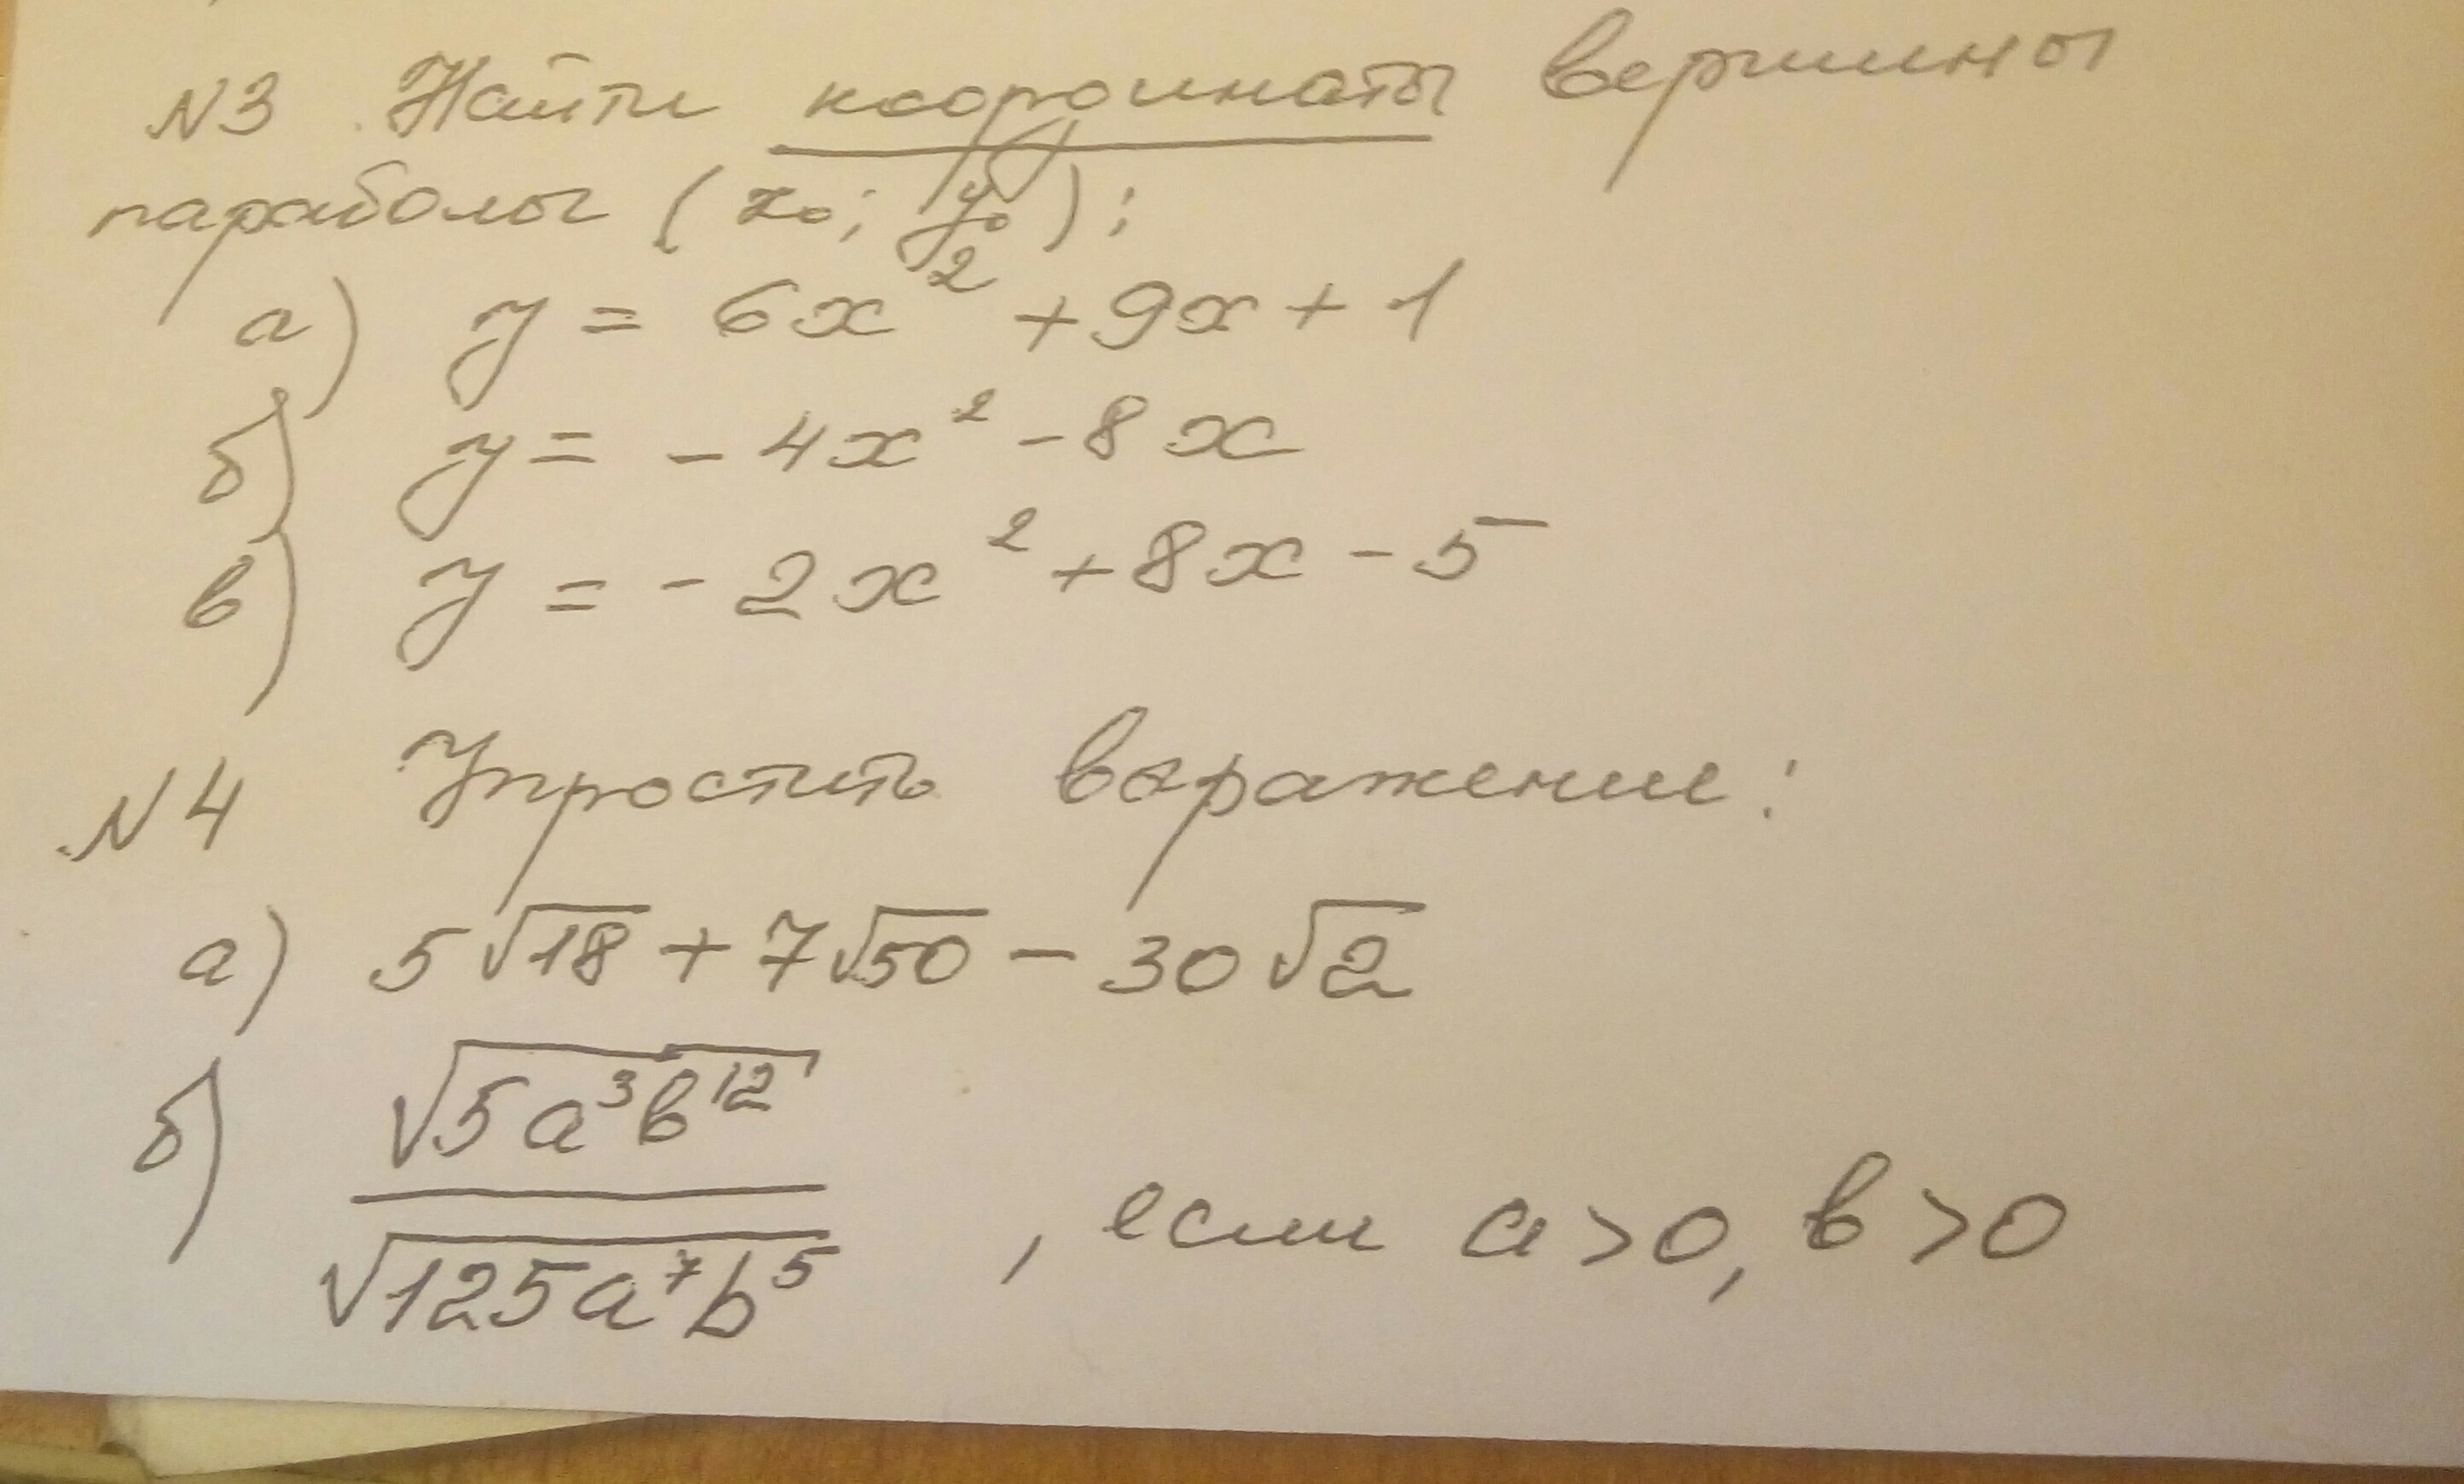 №3. Найти координаты вершины
параболы (x₀; y₀):
а) y = 6x² + 9x + 1
б) y = - 4x² - 8x
в) y = - 2x² + 8x - 5
№4 Упростить выражение:
а) 5√18 + 7√50 - 30√2
б) √(5a³b¹²) / √(125a⁷b⁵) , если a>0, b>0